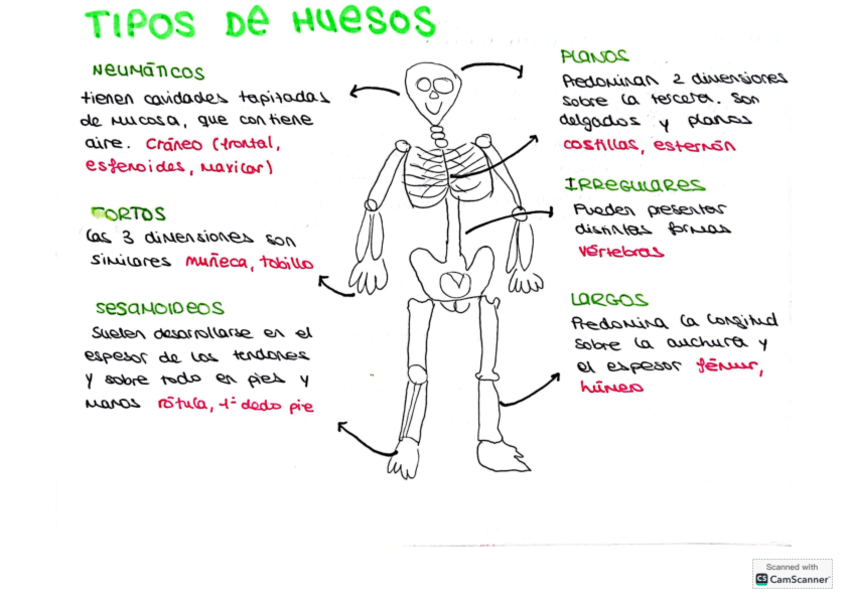 TIPOS DE HUESOS
NEUMÁTICOS
tienen cavidades tapitadas
de mucosa, que contiene
aire. Cráneo (frontal,
esfenoides, maxilar)
CORTOS
Las 3 dimensiones son
similares muñeca, tobillo
SESAMOIDEOS
Suelen desarrollarse en el
espesor de los tendones
y sobre todo en pies y
manos rótula, 1º dedo pie
PLANOS
Predominan 2 dimensiones
sobre la tercera. Son
delgados y planos
costillas, esternón
IRREGULARES
Pueden presentar
distintas formas
vértebras
LARGOS
Predomina la longitud
sobre la anchura y
el espesor fémur,
húmero
Scanned with
CS CamScanner